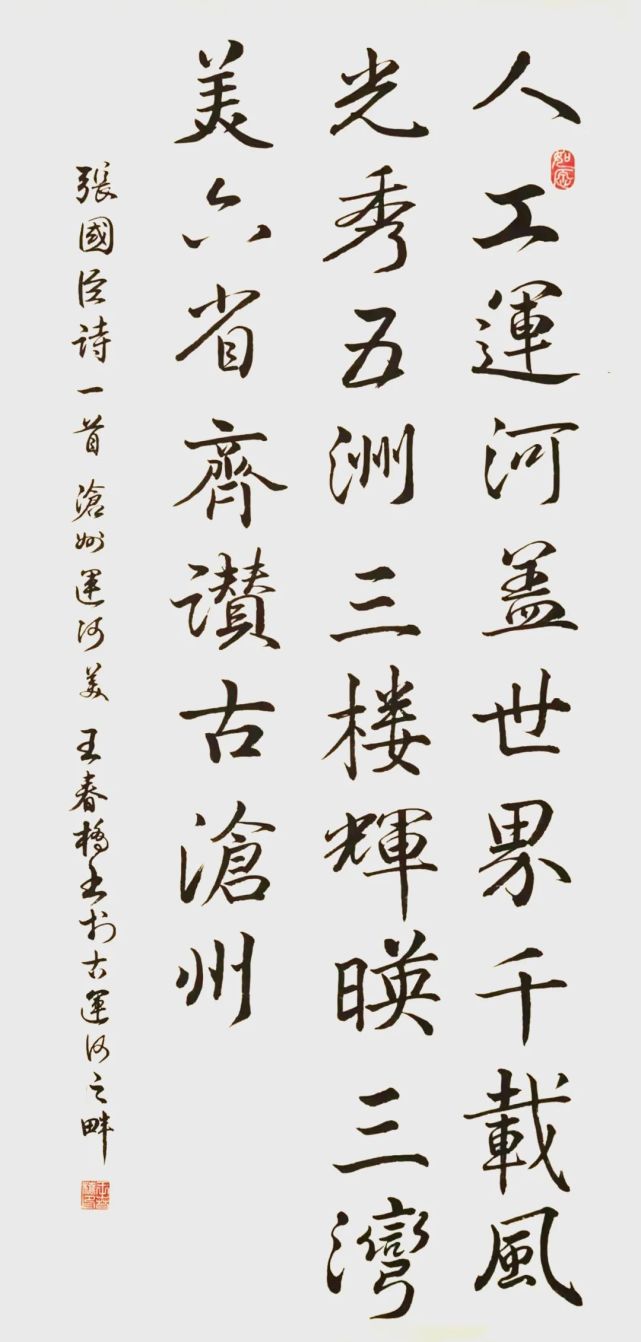 人工運河盖世界千載風
光秀五洲三楼輝暎三灣
美六省齊讃古滄州
張國臣詩一首 滄州運河美 王春橋书於古運河之畔